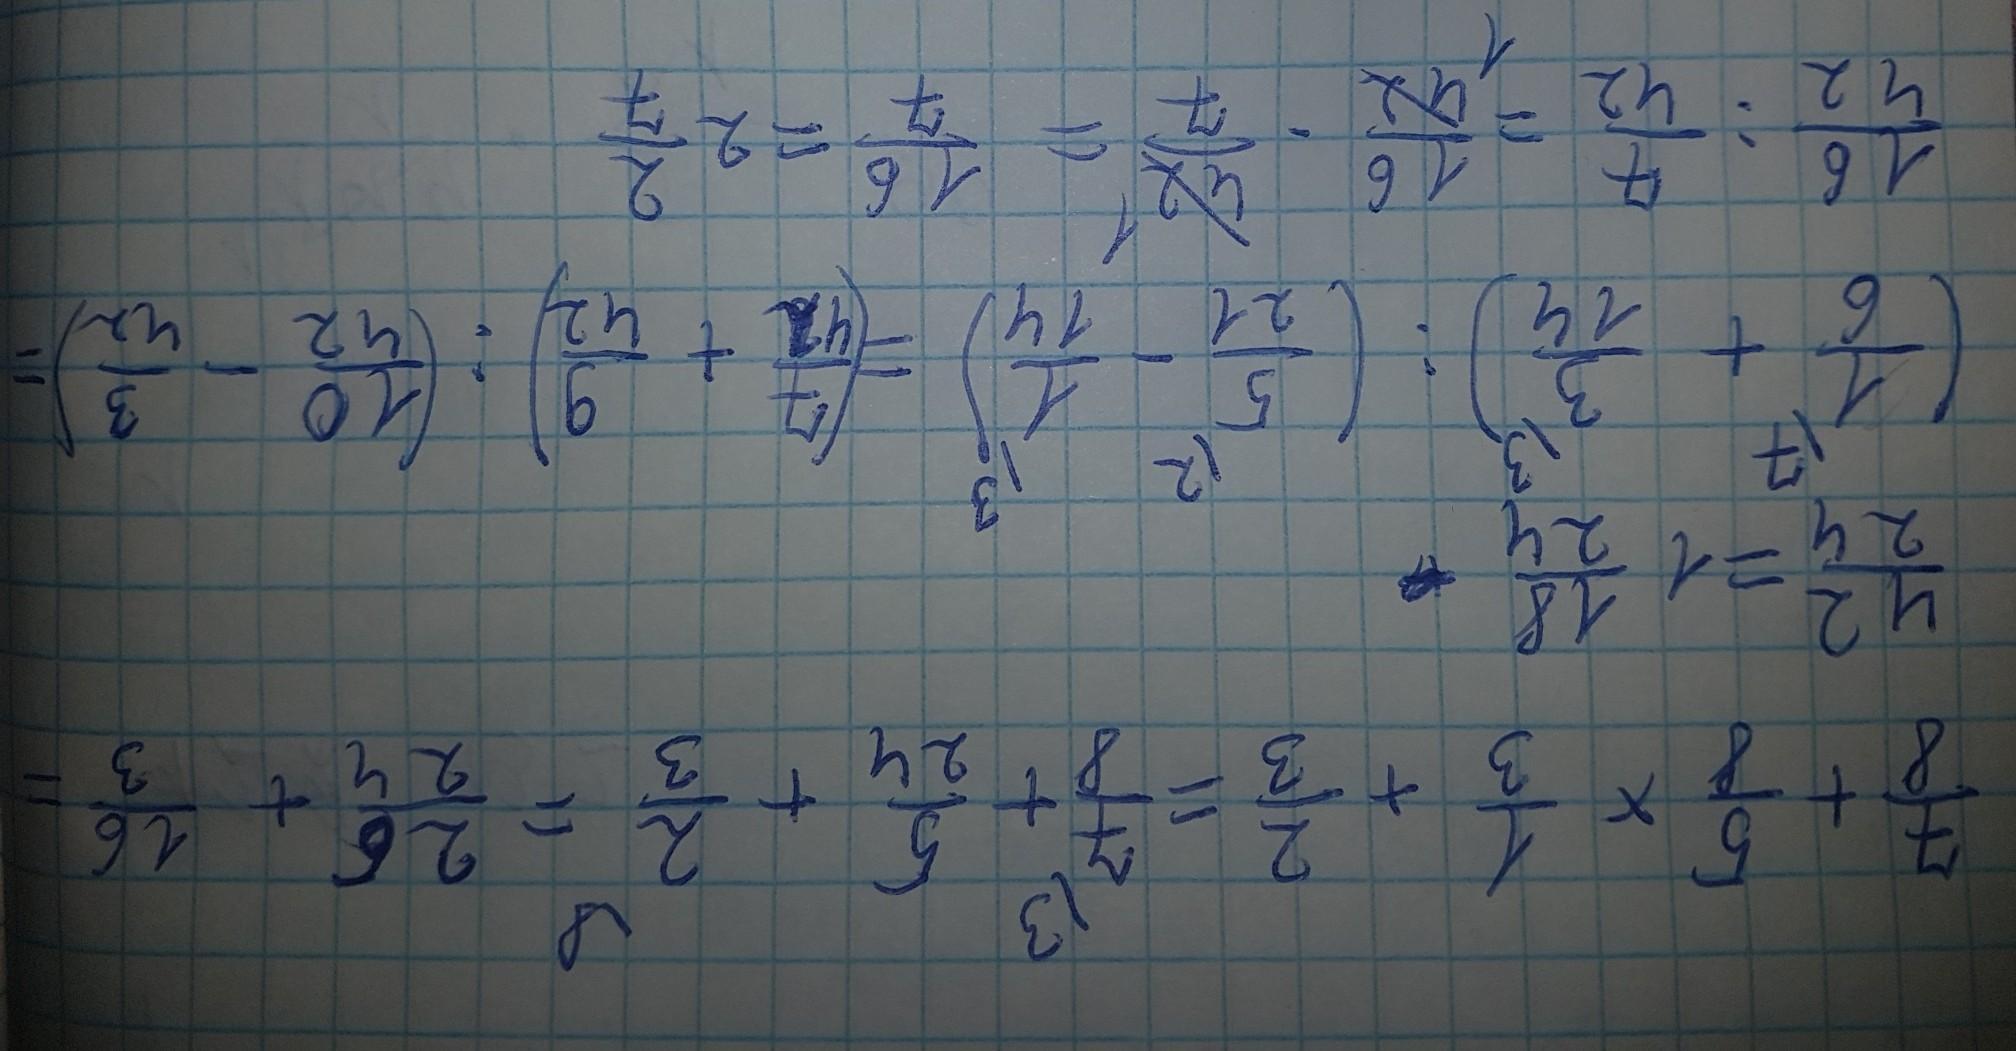 7/8 + 5/8 × 1/3 + 2/3 = 7\3/8 + 5/24 + 2\8/3 = 26/24 + 16/3 =
42/24 = 1 18/24
(1\7/6 + 3\3/14) : (5\2/21 - 1\3/14) = (7/42 + 9/42) : (10/42 - 3/42) =
16/42 : 7/42 = 16/42 1 · 42 1/7 = 16/7 = 2 2/7